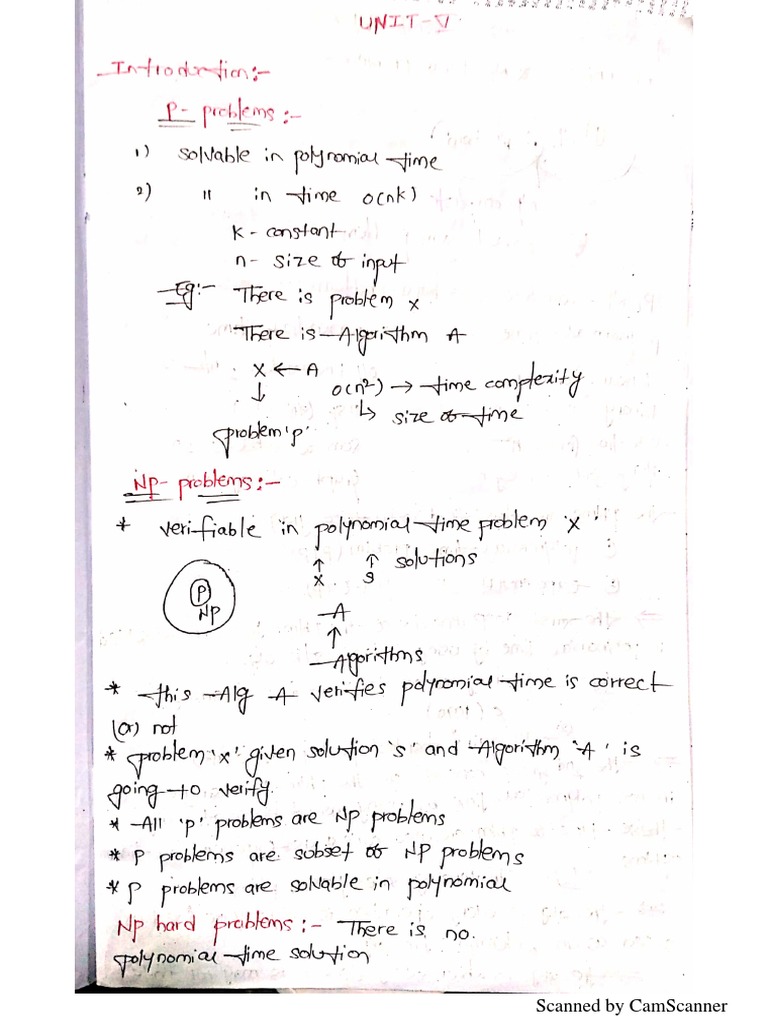 UNIT-V
Introduction:-
P- problems:-
1) solvable in polynomial time
2) " in time o(nk)
k - constant
n- size of input
Eg:- There is problem x
There is Algorithm A
X ← A
↓ o(n²) → time complexity
↳ size of time
problem 'p'
Np- problems:-
* verifiable in polynomial time problem 'x'
↑ ↑ solutions
x s
P
NP
A
↑
Algorithms
* this Alg A verifies polynomial time is correct
(or) not
* problem 'x' given solution 's' and Algorithm 'A' is
going to verify.
* All 'p' problems are Np problems
* P problems are subset of NP problems
* P problems are solvable in polynomial
Np hard problems:- There is no.
polynomial time solution
Scanned by CamScanner